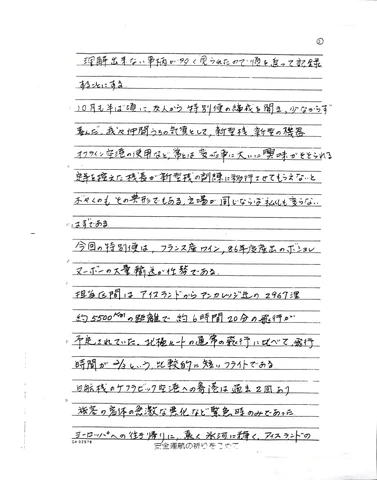 ②
理解出来ない事柄が多く見られたので順を追って記録
することにする
10月も半ば頃に、友人から特別便の編成を聞き、少なからず
喜んだ。我々仲間うちの気質として、新型機、新型の機器
オフライン空港の使用など、常とは変った事に大いに興味がそそられる
定年を控えた機長が新型機の訓練に移行させてもらえないと
その典型でもある。立場が同じならば私も言うない
はずである
今回の特別便は、フランス産ワイン、86年度産出のボジョレ
ヌーボーの大量輸送が任務である。
担当区間はアイスランドからアンカレッジ迄の2967浬
約5500KMの距離で約6時間20分の飛行が
予定されていた。北極ルートの通常の飛行に比べて飛行
時間が2/3という、比較的に短いフライトである
日航機のケフラビック空港への寄港は過去2回あり
旅客の容体の急激な悪化など緊急時のみであった
ヨーロッパへの往き帰りに、蒼く氷河に輝く、アイスランドの
安全運航の祈りをこめて